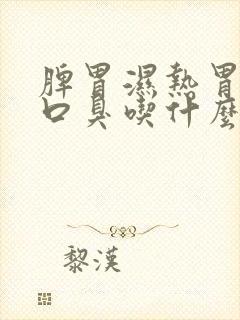 脾胃濕熱胃
口臭喫什麼
黎漢